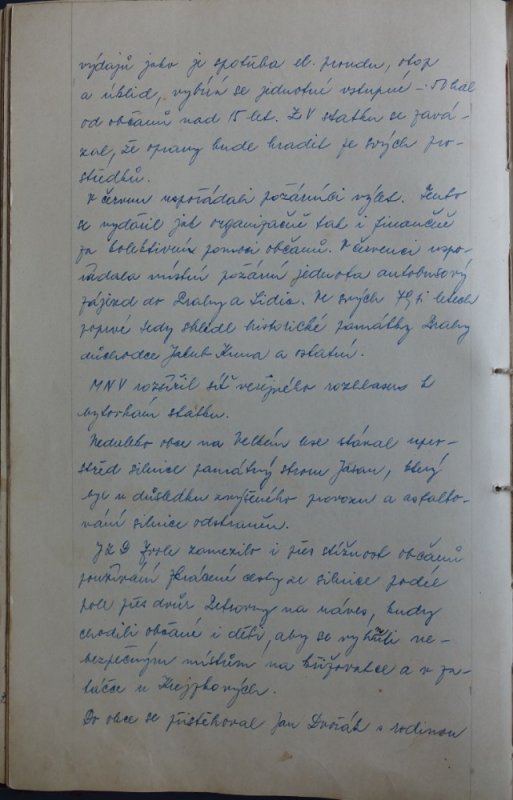 výdajů jako je spotřeba el. proudu, otop
a úklid, vybírá se jednotné vstupné -.50 hal
od občanů nad 15 let. ZV statku se zavá-
zal, že opravy bude hradit ze svých pro-
středků.
V červnu uspořádali požárníci výlet. Tento
se vydařil jak organizačně tak i finančně
za kolektivní pomoci občanů. V červenci uspo-
řádala místní požární jednota autobusový
zájezd do Prahy a Lidic. Ve svých 79ti letech
poprvé tedy shlédl historické památky Prahy
důchodce Jakub Kuna a ostatní.
MNV rozšířil síť veřejného rozhlasu k
bytovkám statku.
Nedaleko obce na Velkém lese stával upro-
střed silnice památný strom Jasan, který
byl v důsledku zvýšeného provozu a asfalto-
vání silnice odstraněn.
JZD Zvole zamezilo i přes stížnost občanů
používání zkrácené cesty ze silnice podél
pole přes dvůr na náves, kudy
chodili občané i děti, aby se vyhnuli ne-
bezpečným místům na křižovatce a v za-
táčce u Krejzkových.
Do obce se přistěhoval Jan Dvořák s rodinou